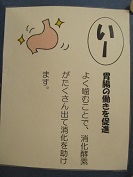 いー
胃腸の働きを促進
よく噛むことで、消化酵素
がたくさん出て消化を助け
ます。